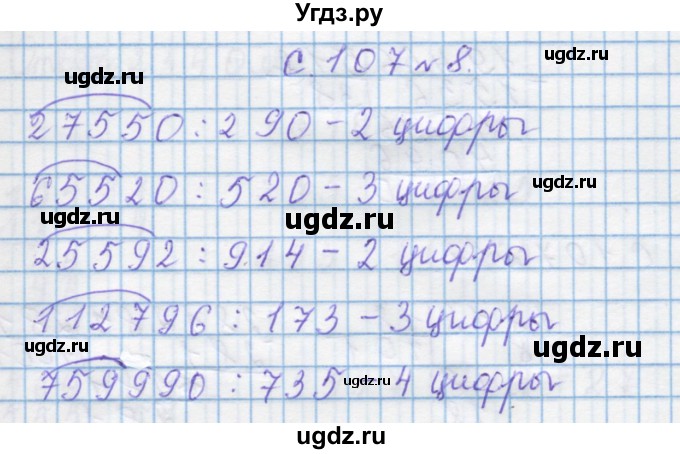 Угдз.ру
с. 107 № 8.
ugdz.ru
ugdz.ru
ugdz.ru
27550 : 290 - 2 цифры
65520 : 520 - 3 цифры
ugdz.ru
ugdz.ru
25592 : 914 - 2 цифры
ugdz.ru
112796 : 173 - 3 цифры
ugdz.ru
ugdz.ru
759990 : 735 - 4 цифры
ugdz.ru
ugdz.ru